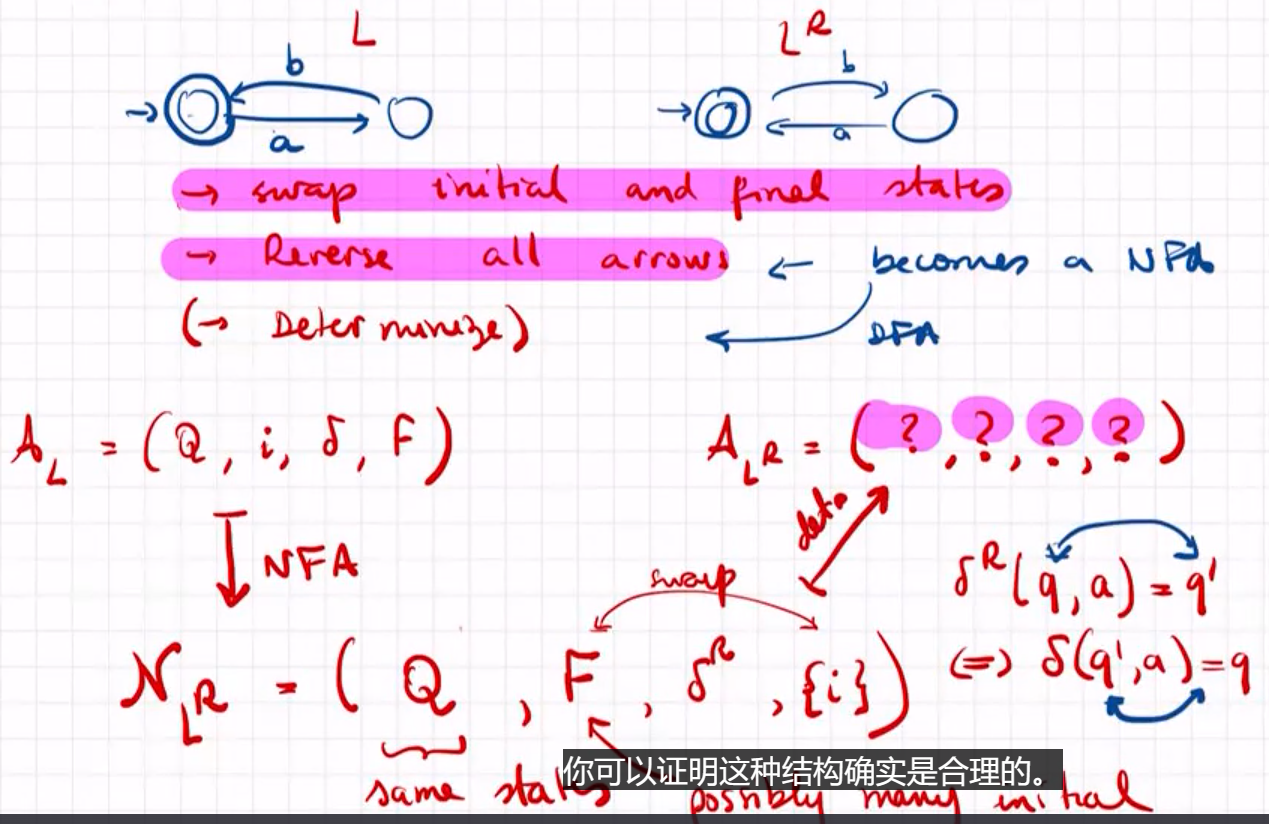 L L^R
b b
a a
→ swap initial and final states
→ Reverse all arrows ← becomes a NFA
(→ Determinize) DFA
A_L = (Q, i, δ, F) A_{L^R} = (?, ?, ?, ?)
NFA det
swap δ^R(q, a) = q'
N_{L^R} = (Q, F, δ^R, {i}) (=) δ(q', a) = q
same states possibly many initial
你可以证明这种结构确实是合理的。